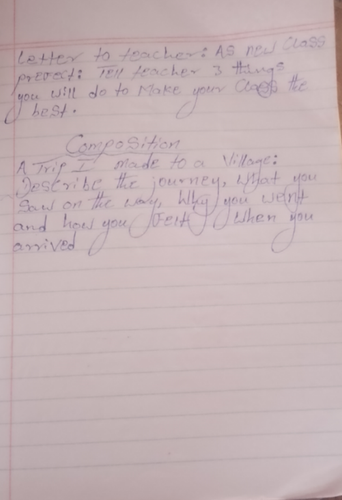 Letter to teacher: As new Class
prefect: Tell teacher 3 things
you will do to make your Class the
best.
Composition
A Trip I made to a Village:
Describe the journey, What you
Saw on the way, Why you went
and how you felt When you
arrived